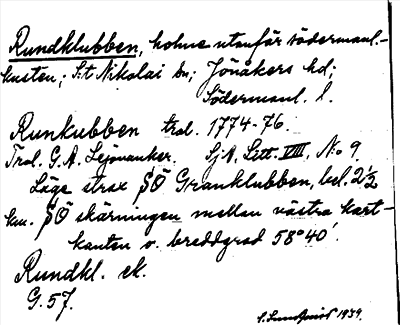 Rundklubben, holme utanför södermanl.-
kusten; S:t Nikolai sn; Jönåkers hd;
Södermanl. l.
Runkubben trol. 1774-76.
Trol. G. A. Lejonanker. SjA, Litt. VIII, No 9.
Läge strax SÖ Granklubben, bel. 2½
km. SÖ skärningen mellan västra kart-
kanten o. breddgrad 58°40′.
Rundkl. ek.
G. 57.
1939.